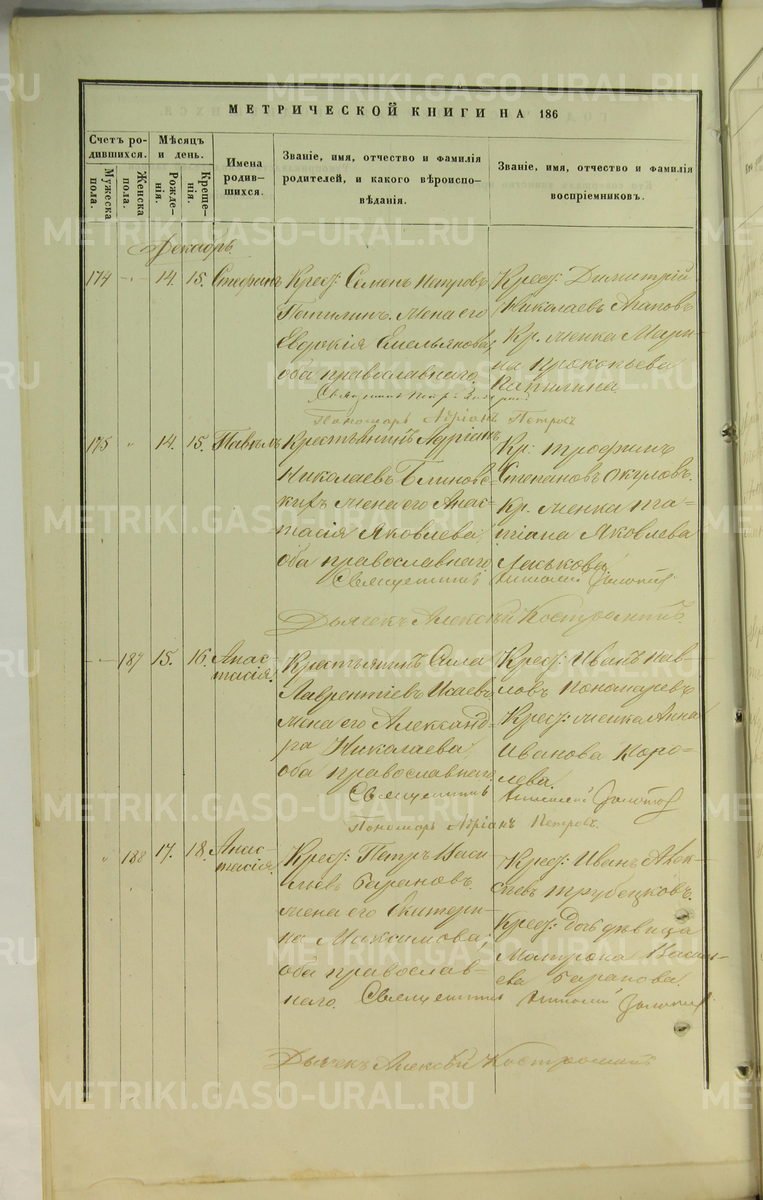 МЕТРИЧЕСКОЙ КНИГИ НА 186
Счетъ родившихся.
Мужеска пола.
Женска пола.
Мѣсяцъ и день.
Рожденія.
Крещенія.
Имена родившихся.
Званіе, имя, отчество и фамилія родителей, и какого вѣроисповѣданія.
Званіе, имя, отчество и фамилія воспріемниковъ.
Декабрь.
174 14. 15. Стефанъ
Крест: Семенъ Петровъ
жена его
Евдокія Емельянова,
оба православнаго.
Крест: Димитрій
Николаевъ Агаповъ
Кр. женка Мари-
на Прокопьева
Пономарь Адріанъ Петровъ
175 14. 15. Павелъ
Крестьянинъ Адріанъ
Николаевъ Блиновс-
кихъ жена его Анас-
тасія Яковлева
оба православнаго.
Священникъ
Кр: Трофимъ
Степановъ Окуловъ.
Кр. женка Та-
тіана Яковлева
Дьячекъ Алексѣй
187 15. 16. Анас-
тасія.
Крестьянинъ Сила
Лаврентіевъ Исаевъ
жена его Александ-
ра Николаева
оба православнаго
Священникъ
Крест: Иванъ Пав-
ловъ Пономаревъ
Крест: женка Анна
Иванова Коро-
лева.
Пономарь Адріанъ Петровъ.
188 17. 18. Анас-
тасія.
Крест: Петръ Васи-
льевъ Барановъ,
жена его Екатери-
на Максимова;
оба православ-
наго. Священникъ
Крест: Иванъ Алек-
сѣевъ Трубецковъ.
Крест: дочь дѣвица
Матрона Василь-
ева Баранова.
Дьячекъ Алексѣй
METRIKI.GASO-URAL.RU